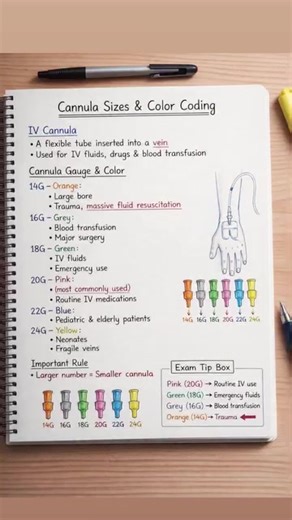 Cannula Sizes & Color Coding
IV Cannula
• A flexible tube inserted into a vein
• Used for IV fluids, drugs & blood transfusion
Cannula Gauge & Color
14G – Orange:
• Large bore
• Trauma, massive fluid resuscitation
16G – Grey:
• Blood transfusion
• Major surgery
18G – Green:
• IV fluids
• Emergency use
20G – Pink:
• (most commonly used)
• Routine IV medications
22G – Blue:
• Pediatric & elderly patients
24G – Yellow:
• Neonates
• Fragile veins
14G 16G 18G 20G 22G 24G
Important Rule
• Larger number = Smaller cannula
14G 16G 18G 20G 22G 24G
Exam Tip Box
Pink (20G) → Routine IV use
Green (18G) → Emergency fluids
Grey (16G) → Blood transfusion
Orange (14G) → Trauma ←